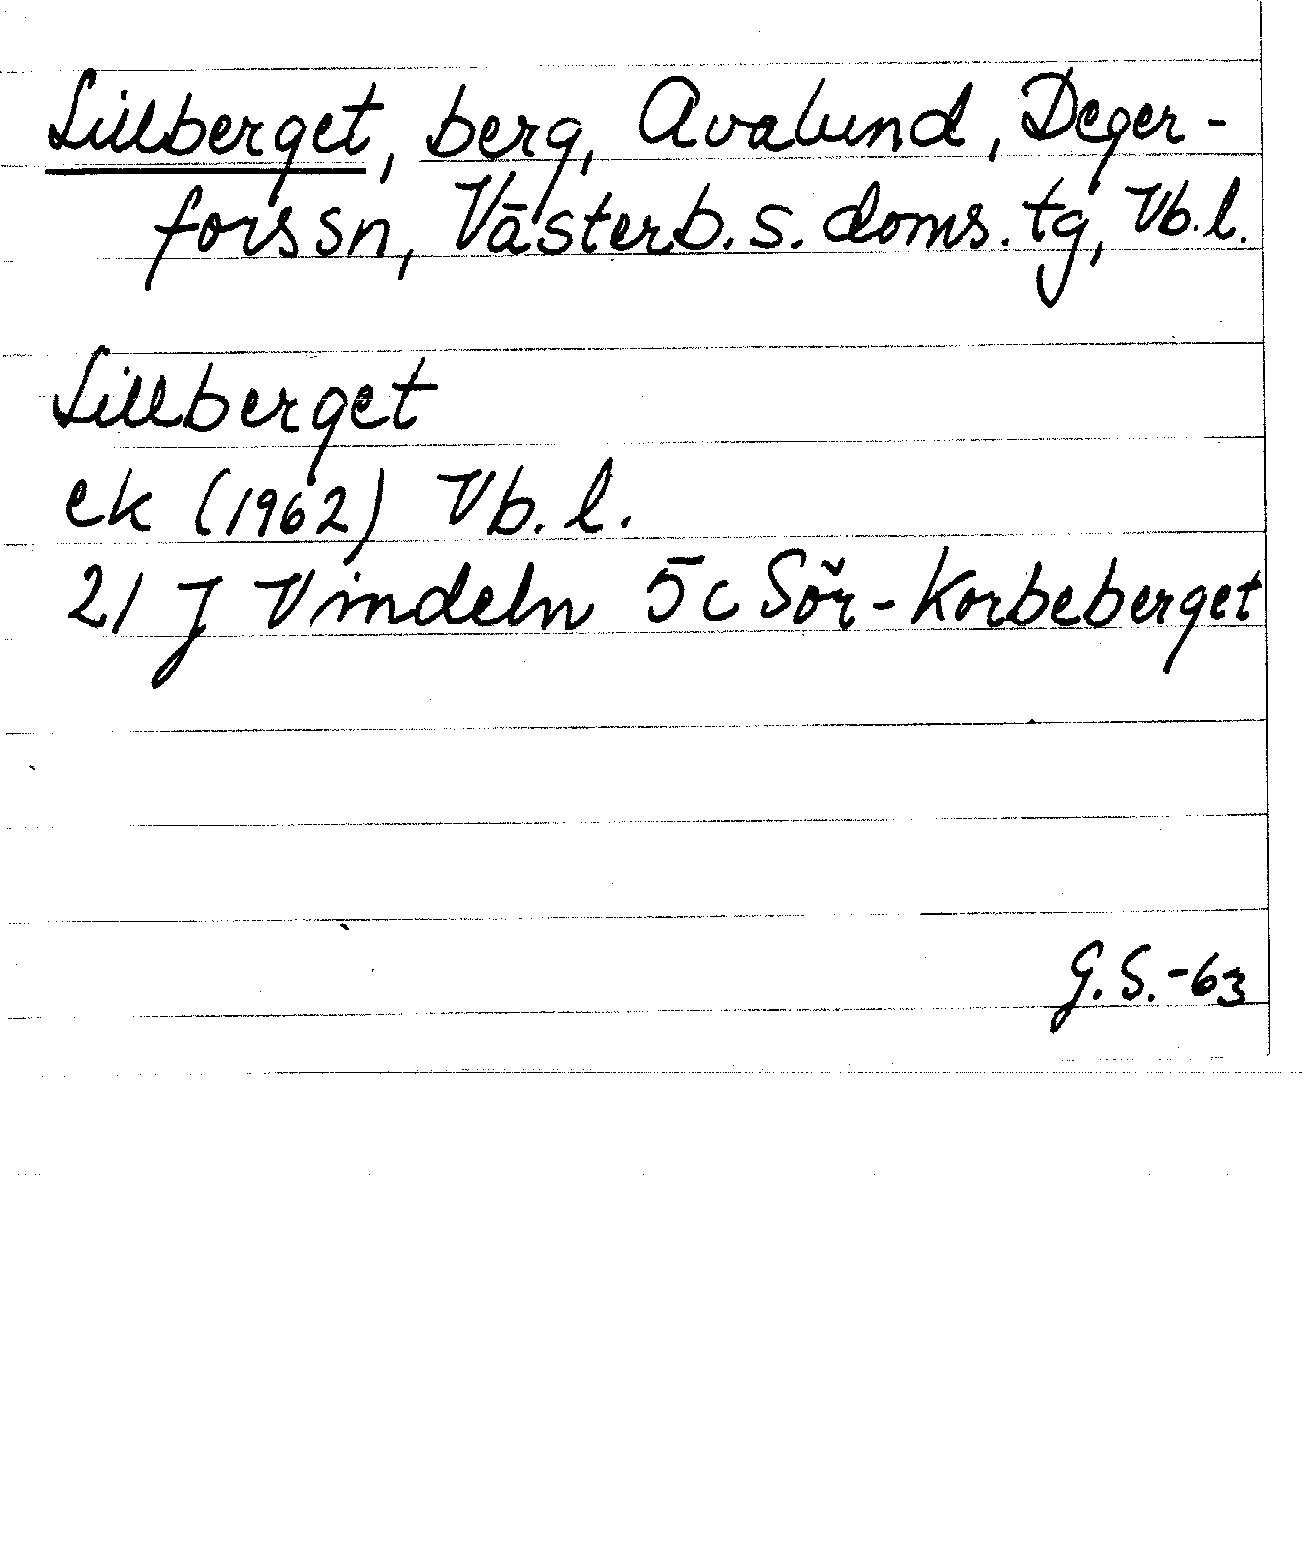 Lillberget, berg, Avalund, Deger-
fors sn, Västerb. s. doms. tg, Vb. l.
Lillberget
ek (1962) Vb. l.
21 J Vindeln 5c Sör-Korbeberget
G.S.-63